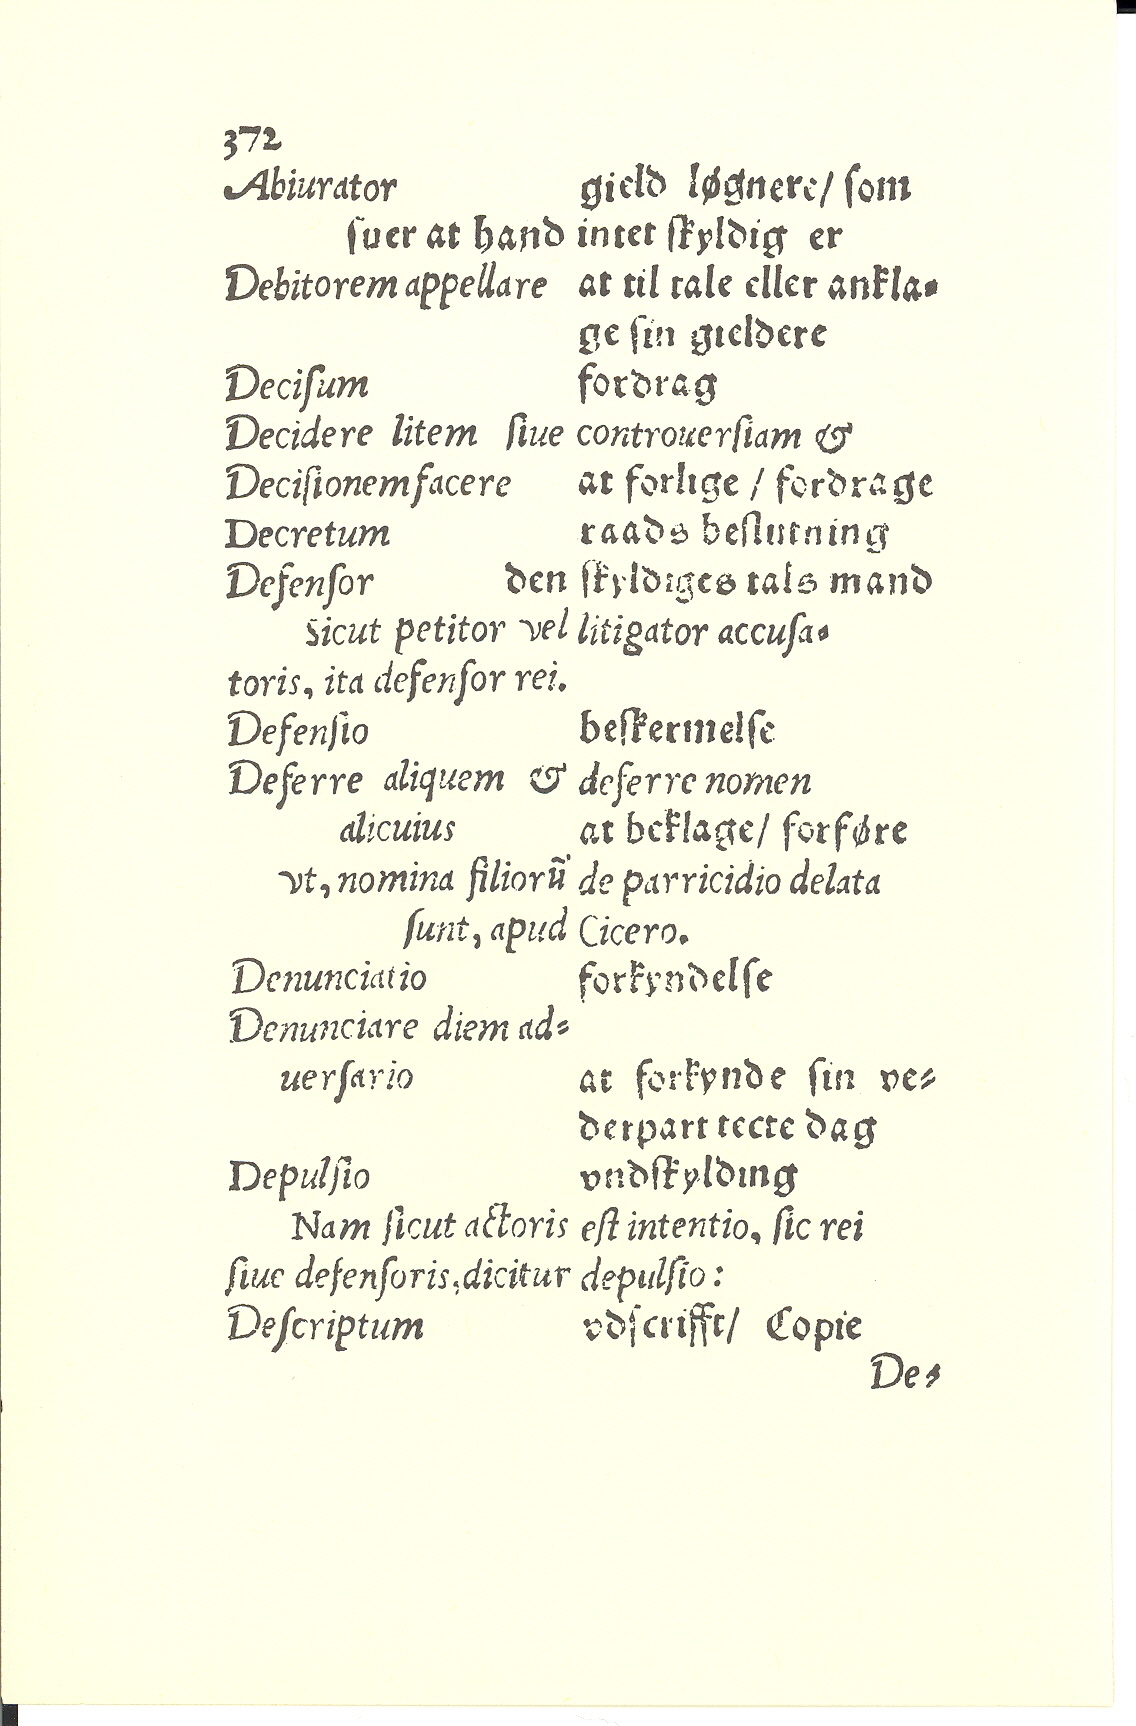 372
Abiurator gield løgnere/ ſom
ſuer at hand intet ſkyldig er
Debitorem appellare at til tale eller ankla-
ge ſin gieldere
Deciſum fordrag
Decidere litem ſiue controuerſiam &
Deciſionem facere at forlige / fordrage
Decretum raads beſlutning
Defenſor den ſkyldiges tals mand
Sicut petitor vel litigator accuſa-
toris, ita defenſor rei.
Defenſio beſkermelſe
Deferre aliquem & deferre nomen
alicuius at beklage/ forføre
vt, nomina filiorū de parricidio delata
ſunt, apud Cicero.
Denunciatio forkyndelſe
Denunciare diem ad-
uerſario at forkynde ſin ve-
derpart tecte dag
Depulſio vndſkylding
Nam ſicut actoris eſt intentio, ſic rei
ſiue defenſoris, dicitur depulſio:
Deſcriptum vdſcrifft/ Copie
De-